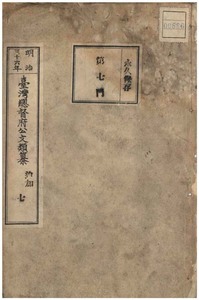 永久保存
第七門
明治
三十六年
臺灣總督府公文類纂
追加
七